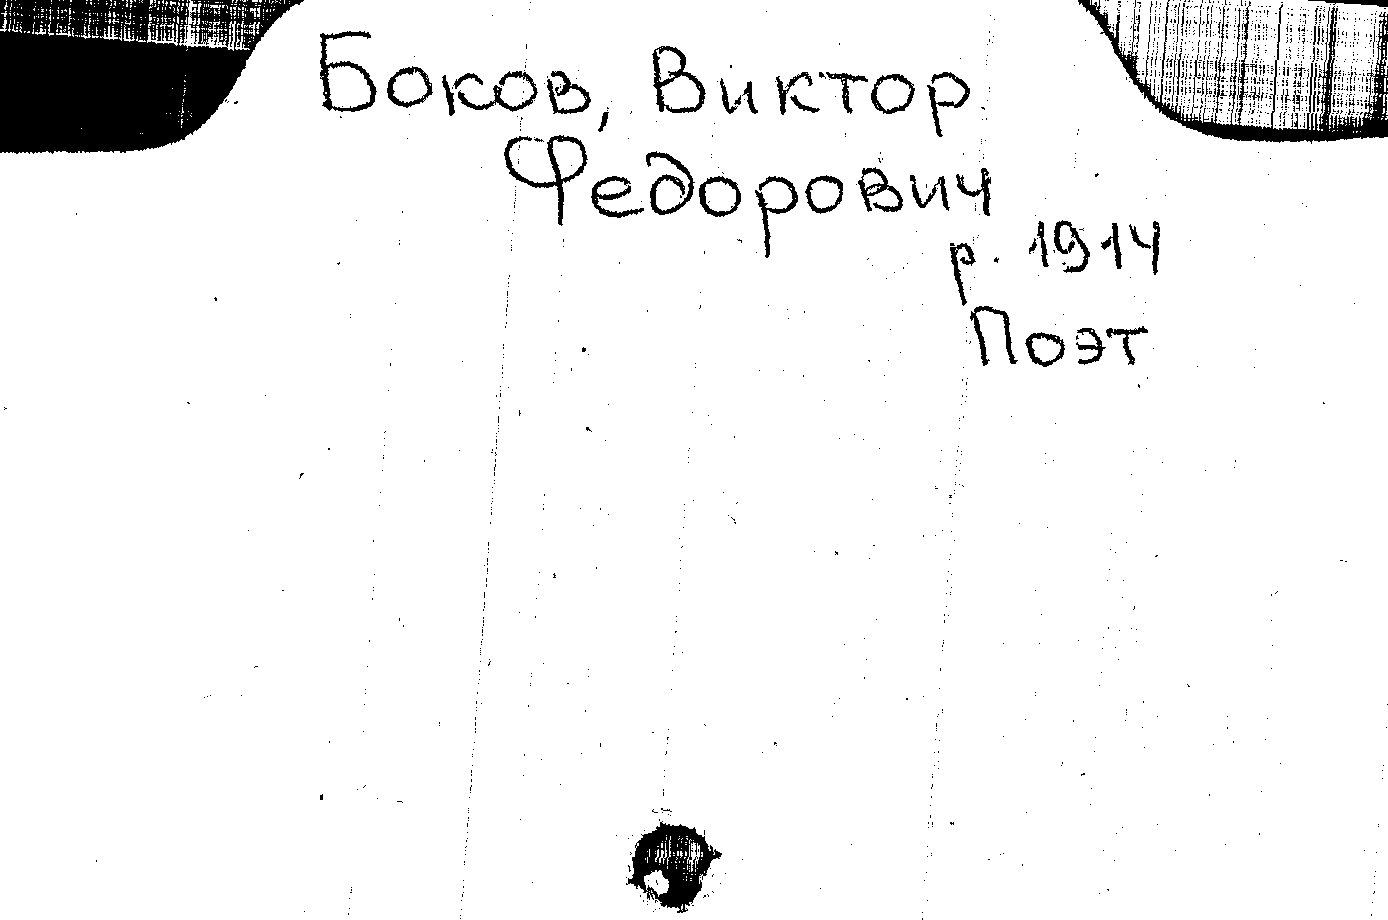 Боков, Виктор
Федорович
р. 1914
Поэт